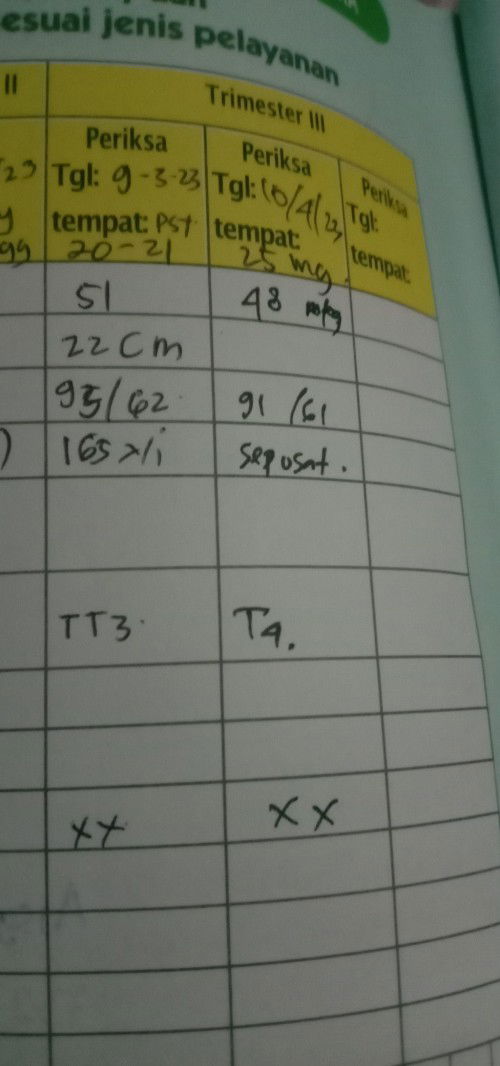 esuai jenis pelayanan
II
Trimester III
Periksa
Tgl: 9-3-23
tempat: PST
20-21
Periksa
Tgl: 10/4/23
tempat:
25 mg.
Periksa
Tgl:
tempat:
51
48
22 Cm
95/62
91/61
165 x/i
TT3.
T4.
xx
XX